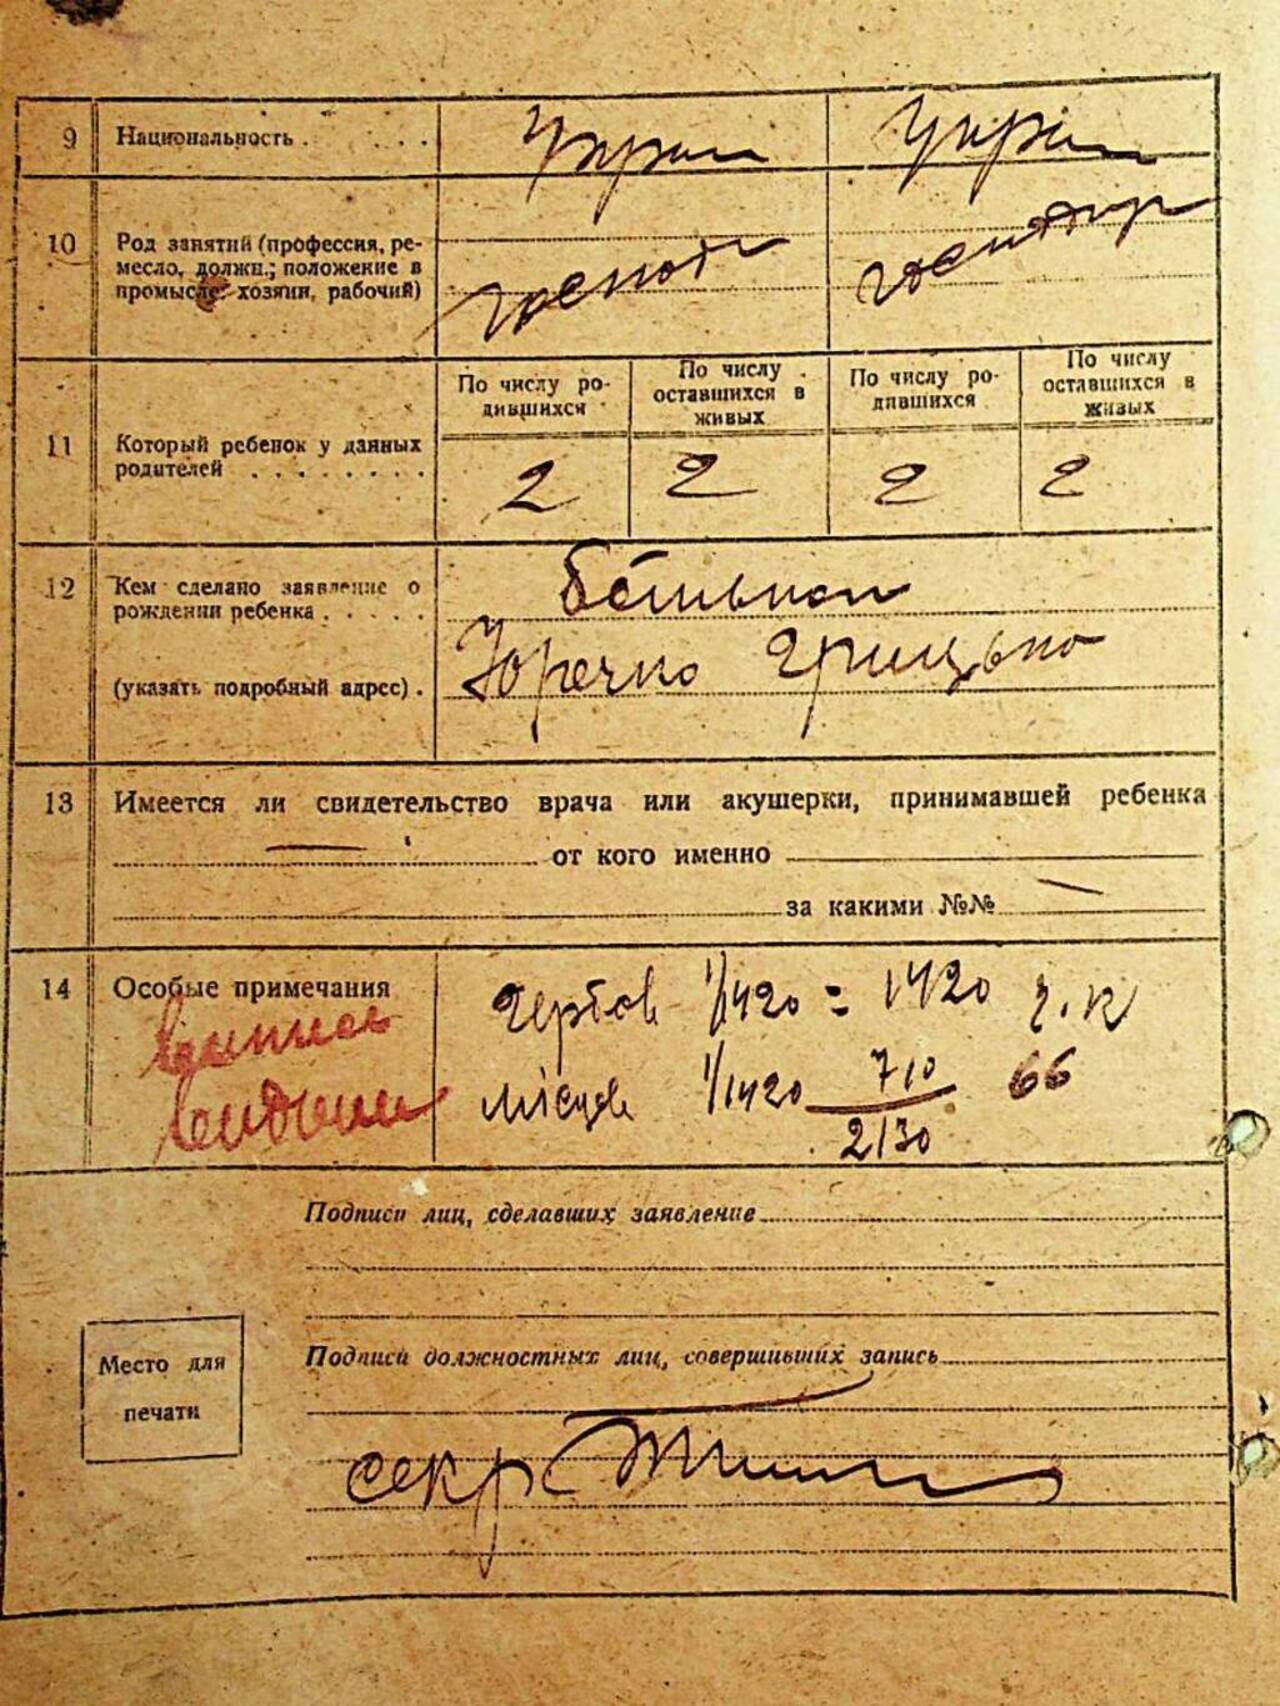 9 Национальность . . . . . Украи Украи
10 Род занятий (профессия, ре-
месло, должн.; положение в
промысле: хозяин, рабочий)
По числу ро-
дившихся
По числу
оставшихся в
живых
По числу ро-
дившихся
По числу
оставшихся в
живых
11 Который ребенок у данных
родителей . . . . . . . . 2 2 2 2
12 Кем сделано заявление о
рождении ребенка . . . . .
(указать подробный адрес) . Юречко Грицько
13 Имеется ли свидетельство врача или акушерки, принимавшей ребенка
— от кого именно
за какими №№ —
14 Особые примечания
Гербов 1/1420 = 1420 г. к
місцев 1/1420 710 66
2130
Подписи лиц, сделавших заявление
Место для
печати
Подписи должностных лиц, совершивших запись
секр